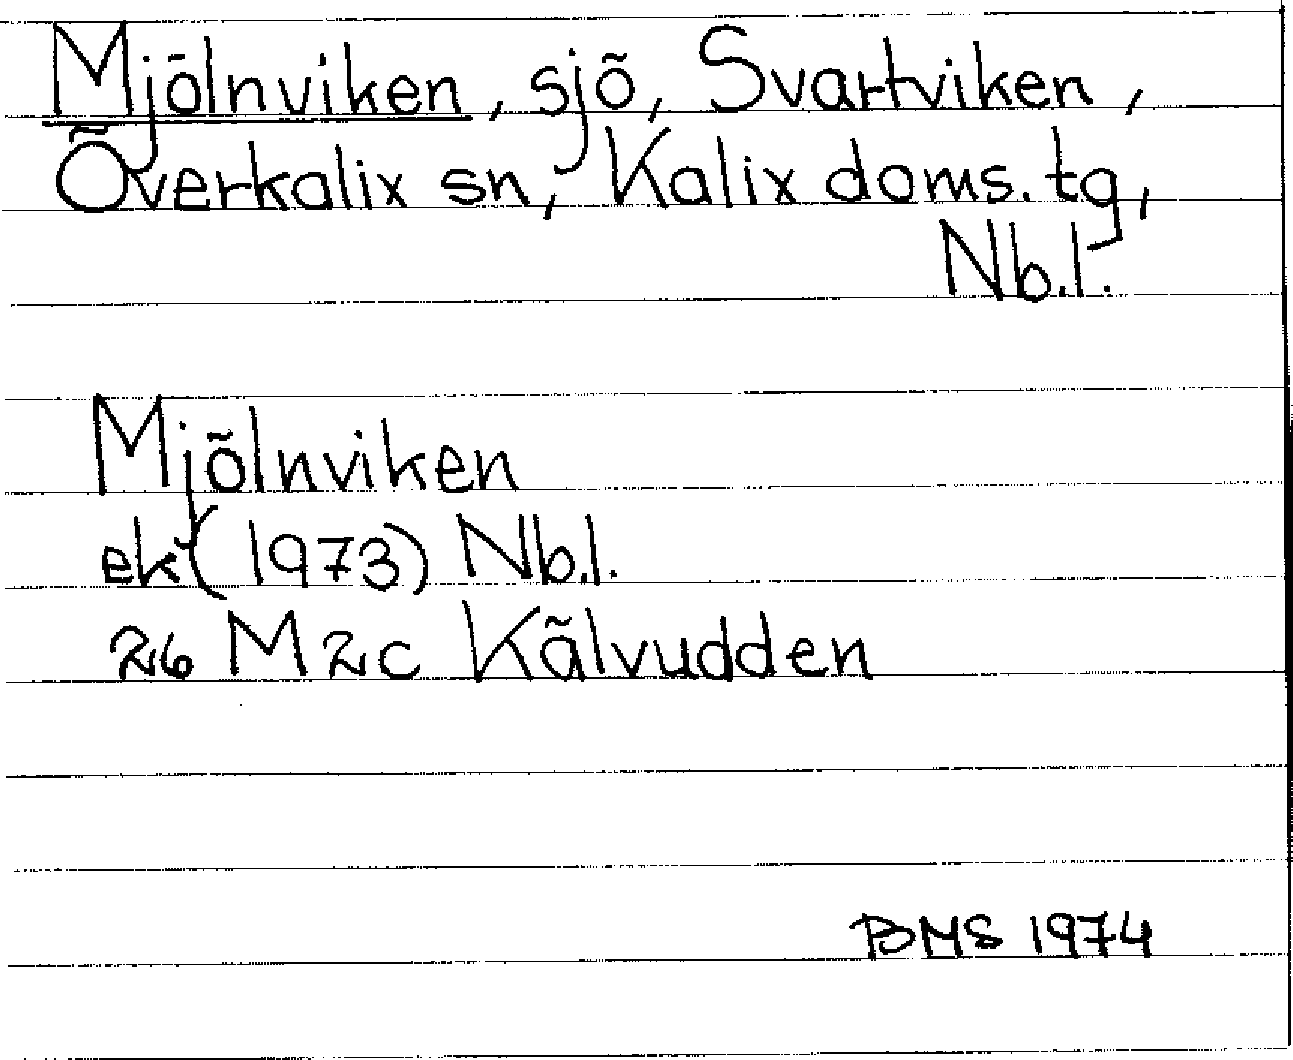 Mjölnviken, sjö, Svartviken,
Överkalix sn, Kalix doms. tg,
Nb.l.
Mjölnviken
ek (1973) Nb.l.
26 M2c Kälvudden
BMS 1974